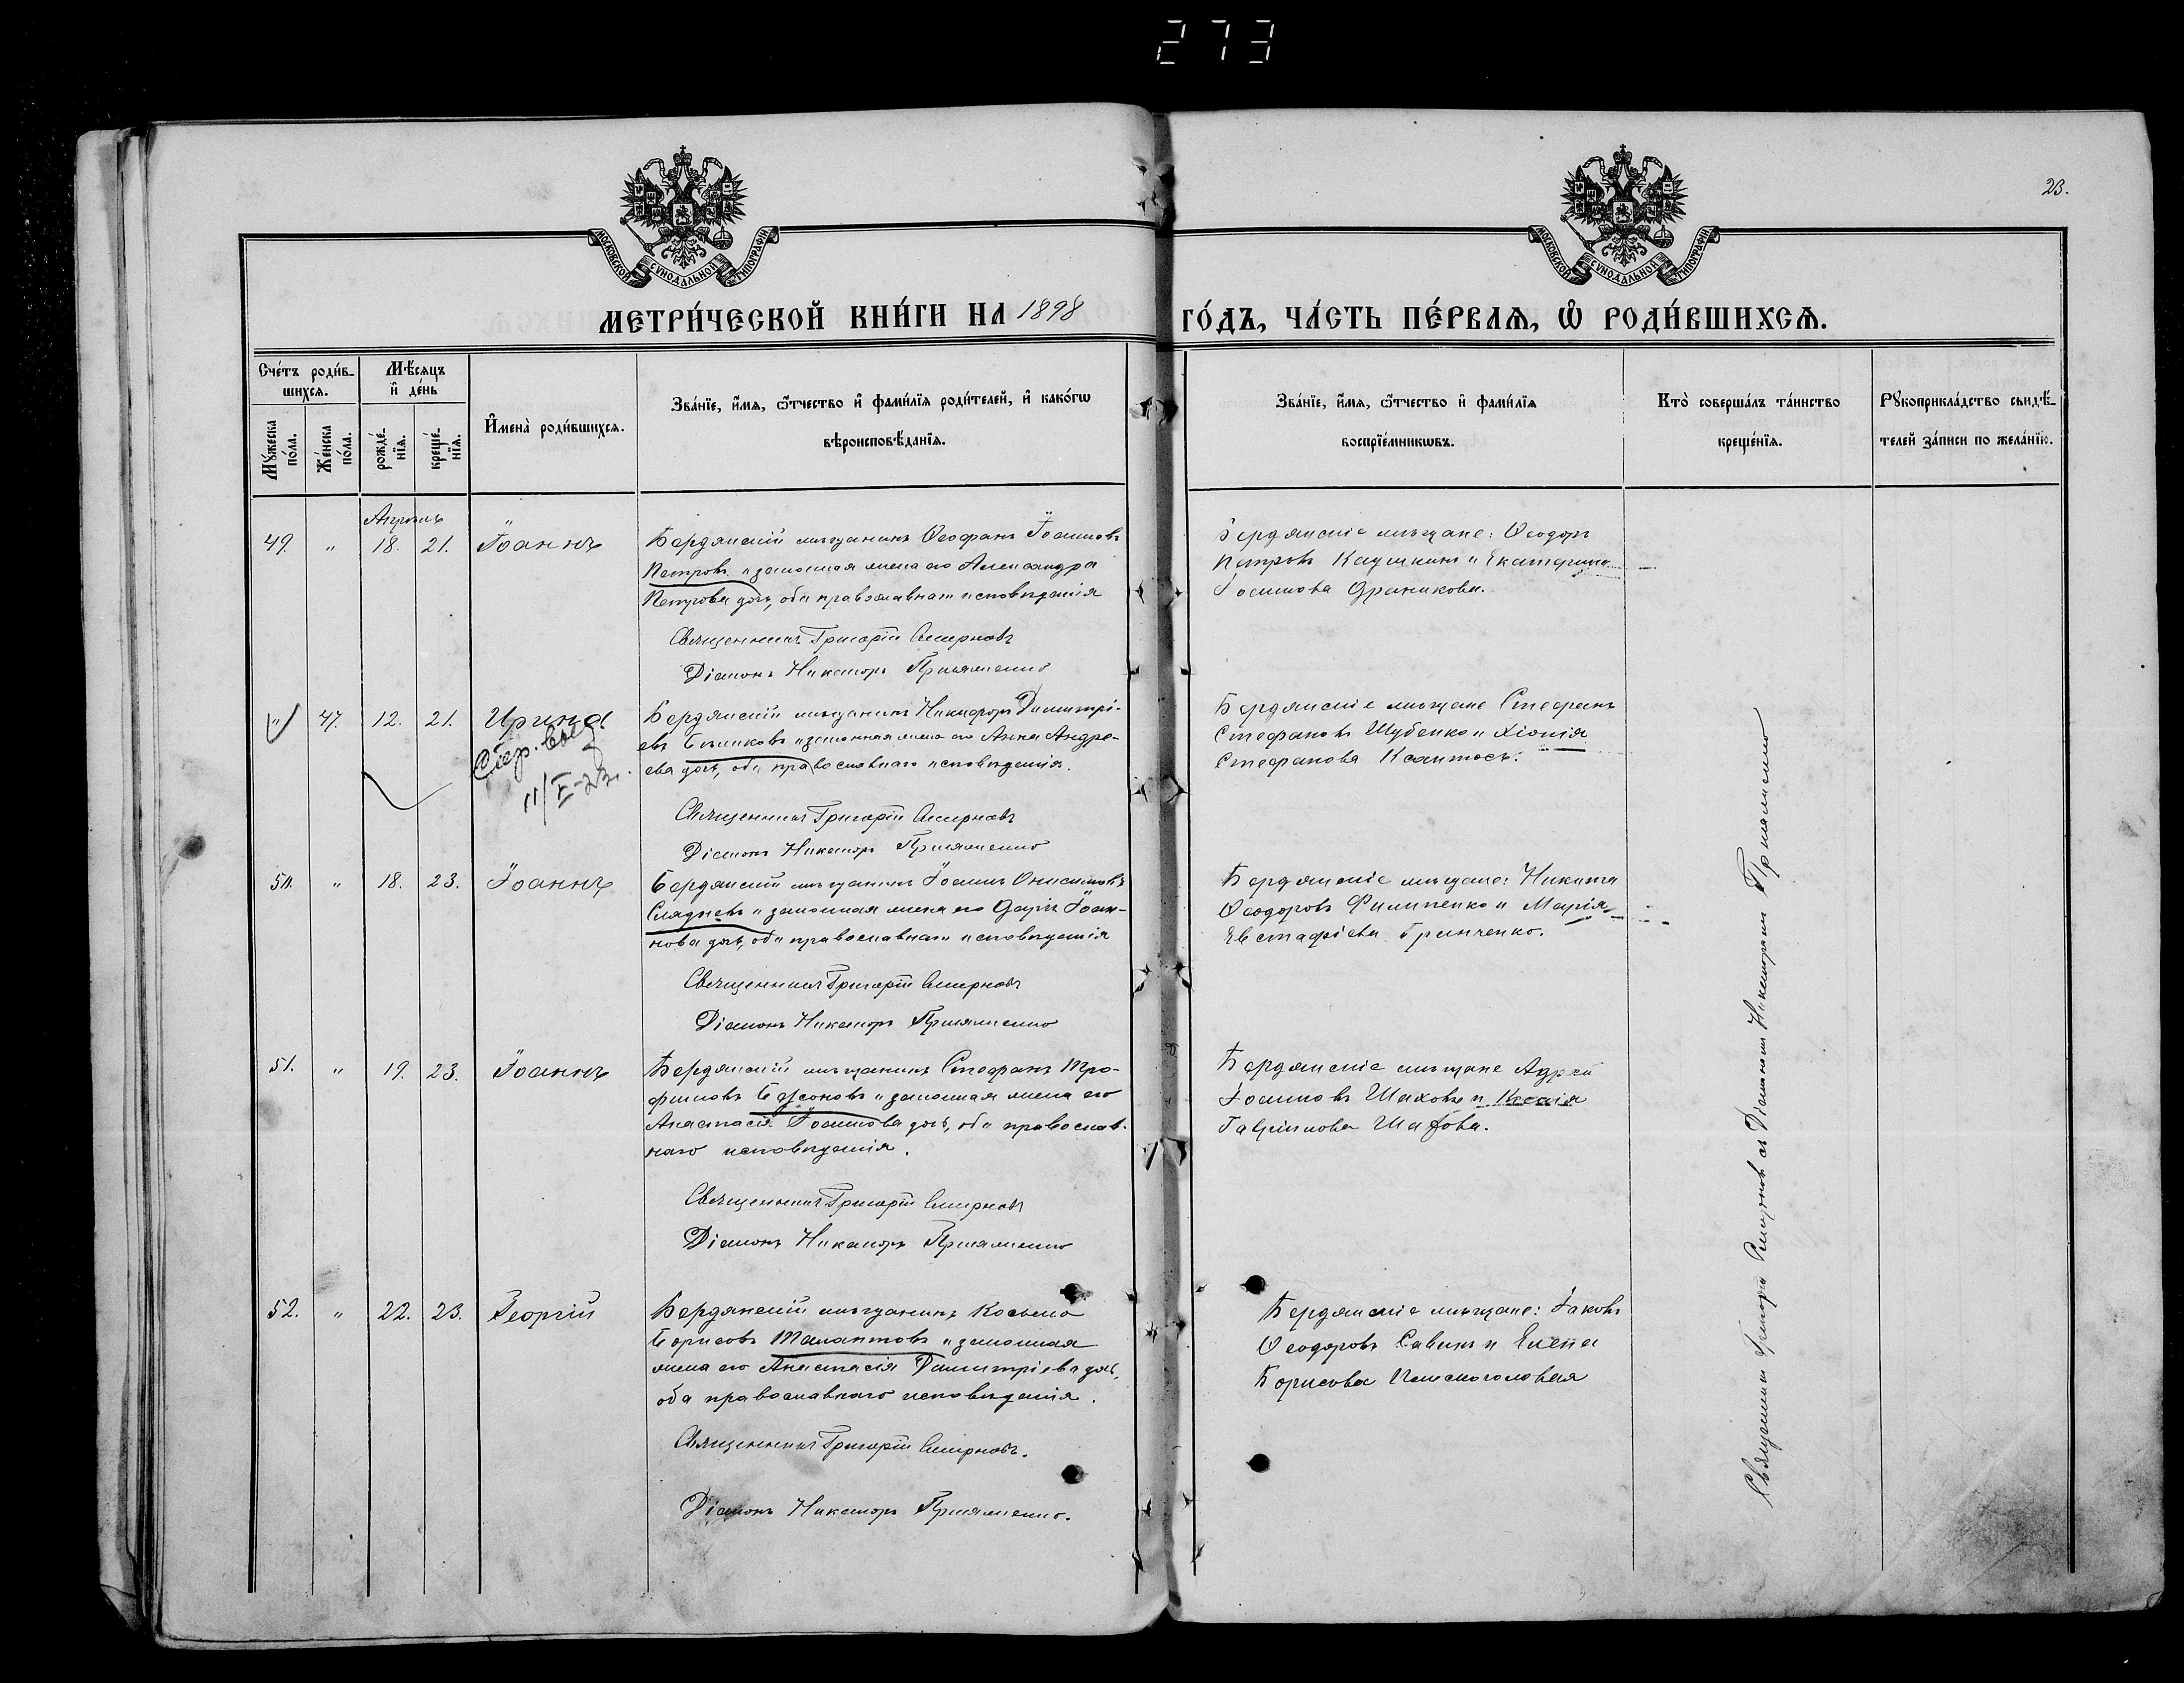 273
23.
МОСКОВСКОЙ СѴНОДАЛЬНОЙ ТИПОГРАФІИ
МОСКОВСКОЙ СѴНОДАЛЬНОЙ ТИПОГРАФІИ
МЕТРИ́ЧЕСКОЙ КНИ́ГИ НА 1898 ГО́ДЪ, ЧА́СТЬ ПЕ́РВАѦ, Ѽ РОДИ́ВШИХСѦ.
Сче́тъ роди́в-
шихсѧ.
Мѣ́сяцъ
и҆ де́нь
Мꙋ́жеска по́ла.
Же́нска по́ла.
рожде́-
нїѧ.
креще́-
нїѧ.
И҆мена̀ роди́вшихсѧ.
Зва́нїе, и҆́мѧ, ѻ҆́тчество и҆ фами́лїѧ роди́телей, и҆ како́гѡ
вѣроисповѣ́данїѧ.
Зва́нїе, и҆́мѧ, ѻ҆́тчество и҆ фами́лїѧ
воспрїе́мникѡвъ.
Кто̀ соверша́лъ та́инство
креще́нїѧ.
Рꙋкоприкла́дство свидѣ́-
телей за́писи по жела́нїю.
Апрѣль
49. " 18. 21. Іоаннъ
Бердянскій мѣщанинъ Ѳеофанъ Іоанновъ
Петровъ и законная жена его Александра
Петрова дочь, оба православнаго исповѣданія
Священникъ Григорій Смирновъ
Діаконъ Никаноръ
Бердянскіе мѣщане: Ѳеодоръ
Петровъ и Екатерина
Іоаннова
" 47. 12. 21. Ирина
11/V-23.
Бердянскій мѣщанинъ Никифоръ Димитрі-
евъ и законная жена его Анна Андре-
ева дочь, оба православнаго исповѣданія.
Священникъ Григорій Смирновъ
Діаконъ Никаноръ
Бердянскіе мѣщане Стефанъ
Стефановъ Шубенко и Хіонія
Стефанова
50. " 18. 23. Іоаннъ
Бердянскій мѣщанинъ Іоаннъ Онисимовъ
Сладневъ и законная жена его Дарія Іоан-
нова дочь, оба православнаго исповѣданія
Священникъ Григорій Смирновъ
Діаконъ Никаноръ
Бердянскіе мѣщане: Никита
Ѳеодоровъ Филипенко и Марія
Евстафіева Гринченко.
51. " 19. 23. Іоаннъ
Бердянскій мѣщанинъ Стефанъ Тро-
фимовъ и законная жена его
Анастасія Іоаннова дочь, оба православ-
наго исповѣданія.
Священникъ Григорій Смирновъ
Діаконъ Никаноръ
Бердянскіе мѣщане
Іоанновъ Шаховъ и Ксенія
Гавріилова
52. " 22. 23. Георгій
Бердянскій мѣщанинъ Косьма
Борисовъ Талантовъ и законная
жена его Анастасія Димитріева дочь,
оба православнаго исповѣданія.
Священникъ Григорій Смирновъ.
Діаконъ Никаноръ
Бердянскіе мѣщане: Іаковъ
Ѳеодоровъ Савинъ и Елена
Борисова
Священникъ Григорій Смирновъ съ Діакономъ Никаноромъ